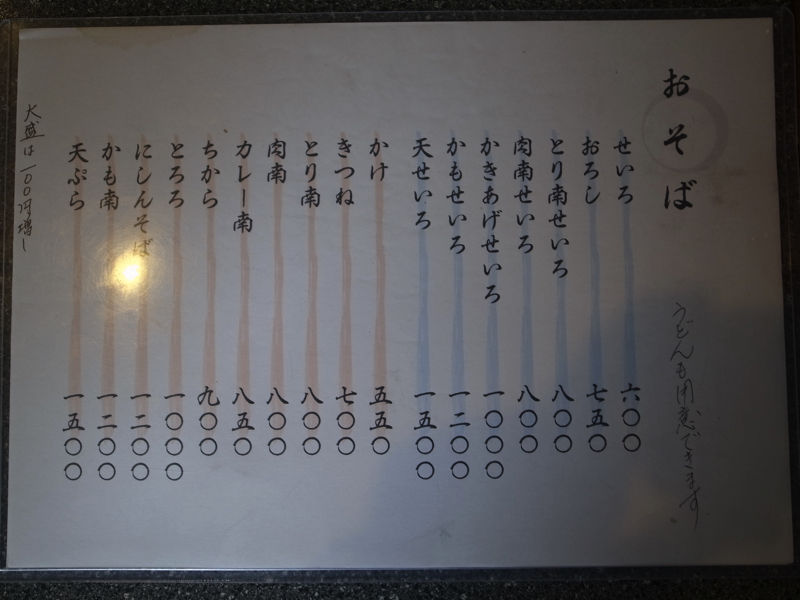 おそば
うどんも用意できます。
せいろ 六〇〇
おろし 七五〇
とり南せいろ 八〇〇
肉南せいろ 八〇〇
かきあげせいろ 一〇〇〇
かもせいろ 一二〇〇
天せいろ 一五〇〇
かけ 五五〇
きつね 七〇〇
とり南 八〇〇
肉南 八〇〇
カレー南 八五〇
ちから 九〇〇
とろろ 一〇〇〇
にしんそば 一二〇〇
かも南 一二〇〇
天ぷら 一五〇〇
大盛は一〇〇円増し